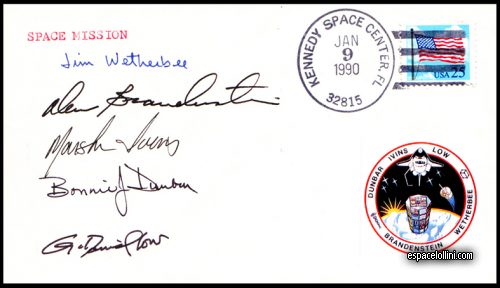 SPACE MISSION
Jim Wetherbee
Dan Brandenstein
Marsha Ivins
Bonnie J Dunbar
G. David Low
KENNEDY SPACE CENTER, FL
JAN
9
1990
32815
USA 25
DUNBAR IVINS LOW
BRANDENSTEIN WETHERBEE
espacelollini.com